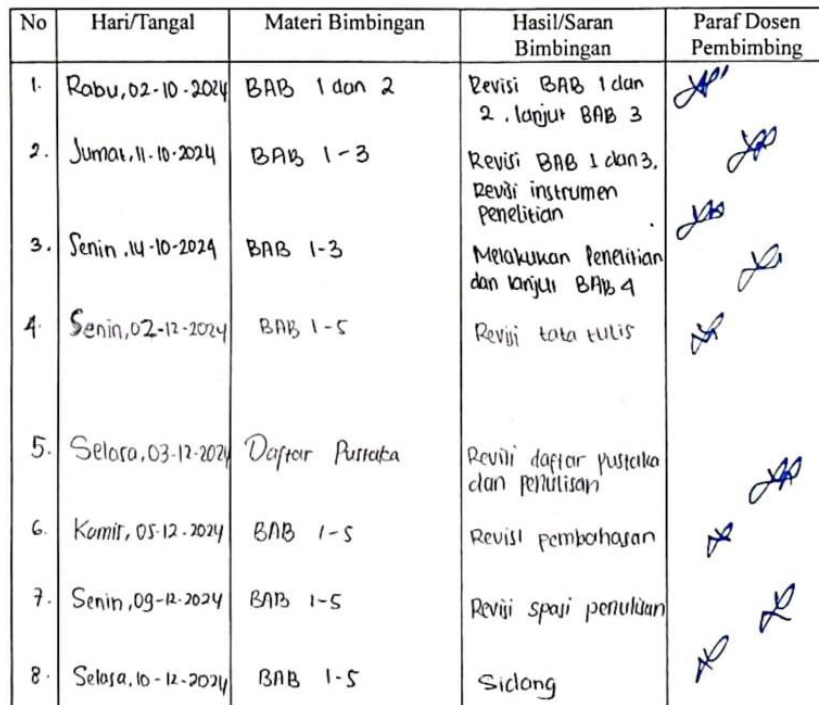 No Hari/Tangal Materi Bimbingan Hasil/Saran Bimbingan Paraf Dosen Pembimbing
1. Rabu, 02-10-2024 BAB 1 dan 2 Revisi BAB 1 dan
2. lanjut BAB 3
2. Jumat, 11-10-2024 BAB 1-3 Revisi BAB 1 dan 3,
Revisi instrumen
penelitian
3. Senin, 14-10-2024 BAB 1-3 Melakukan Penelitian
dan lanjut BAB 4
4. Senin, 02-12-2024 BAB 1-5 Revisi tata tulis
5. Selasa, 03-12-2024 Daftar Pustaka Revisi daftar pustaka
dan penulisan
6. Kamis, 05-12-2024 BAB 1-5 Revisi pembahasan
7. Senin, 09-12-2024 BAB 1-5 Revisi spasi penulisan
8. Selasa, 10-12-2024 BAB 1-5 Sidang